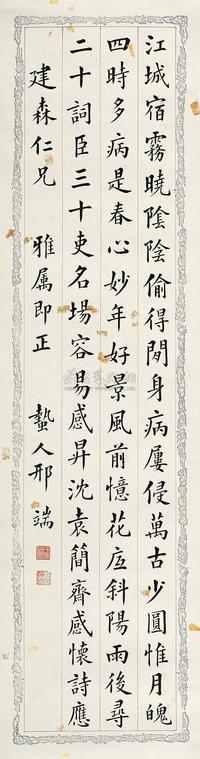 江城宿霧曉陰陰偷得閒身病屢侵萬古少圓惟月魄
四時多病是春心妙年好景風前憶花底斜陽雨後尋
二十詞臣三十吏名場容易感昇沈袁簡齋感懷詩應
建森仁兄 雅属即正 蟄人邢端